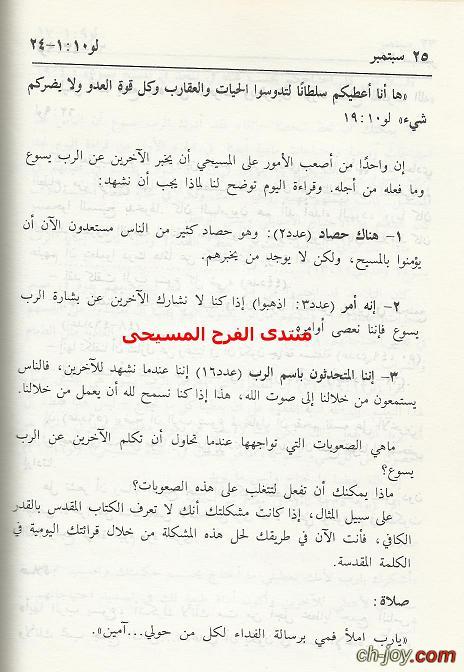 ٢٥ سبتمبر
لو١٠ : ١-٢٤
«ها أنا أعطيكم سلطانًا لتدوسوا الحيات والعقارب وكل قوة العدو ولا يضركم
شيء» لو١٠ : ١٩
إن واحدًا من أصعب الأمور على المسيحي أن يخبر الآخرين عن الرب يسوع
وما فعله من أجله. وقراءة اليوم توضح لنا لماذا يجب أن نشهد:
١- هناك حصاد (عدد٢): وهو حصاد كثير من الناس مستعدون الآن أن
يؤمنوا بالمسيح، ولكن لا يوجد من يخبرهم.
٢- إنه أمر (عدد٣: اذهبوا) إذا كنا لا نشارك الآخرين عن بشارة الرب
يسوع فإننا نعصى أوامره.
منتدى الفرح المسيحى
٣- إننا المتحدثون باسم الرب (عدد١٦) إننا عندما نشهد للآخرين، فالناس
يستمعون من خلالنا إلى صوت الله، هذا إذا كنا نسمح لله أن يعمل من خلالنا.
ماهي الصعوبات التي تواجهها عندما تحاول أن تكلم الآخرين عن الرب
يسوع؟
ماذا يمكنك أن تفعل لتتغلب على هذه الصعوبات؟
على سبيل المثال، إذا كانت مشكلتك أنك لا تعرف الكتاب المقدس بالقدر
الكافي، فأنت الآن في طريقك لحل هذه المشكلة من خلال قرائتك اليومية في
الكلمة المقدسة.
صلاة :
«يارب املأ فمي برسالة الفداء لكل من حولي...آمين».
ch-joy.com